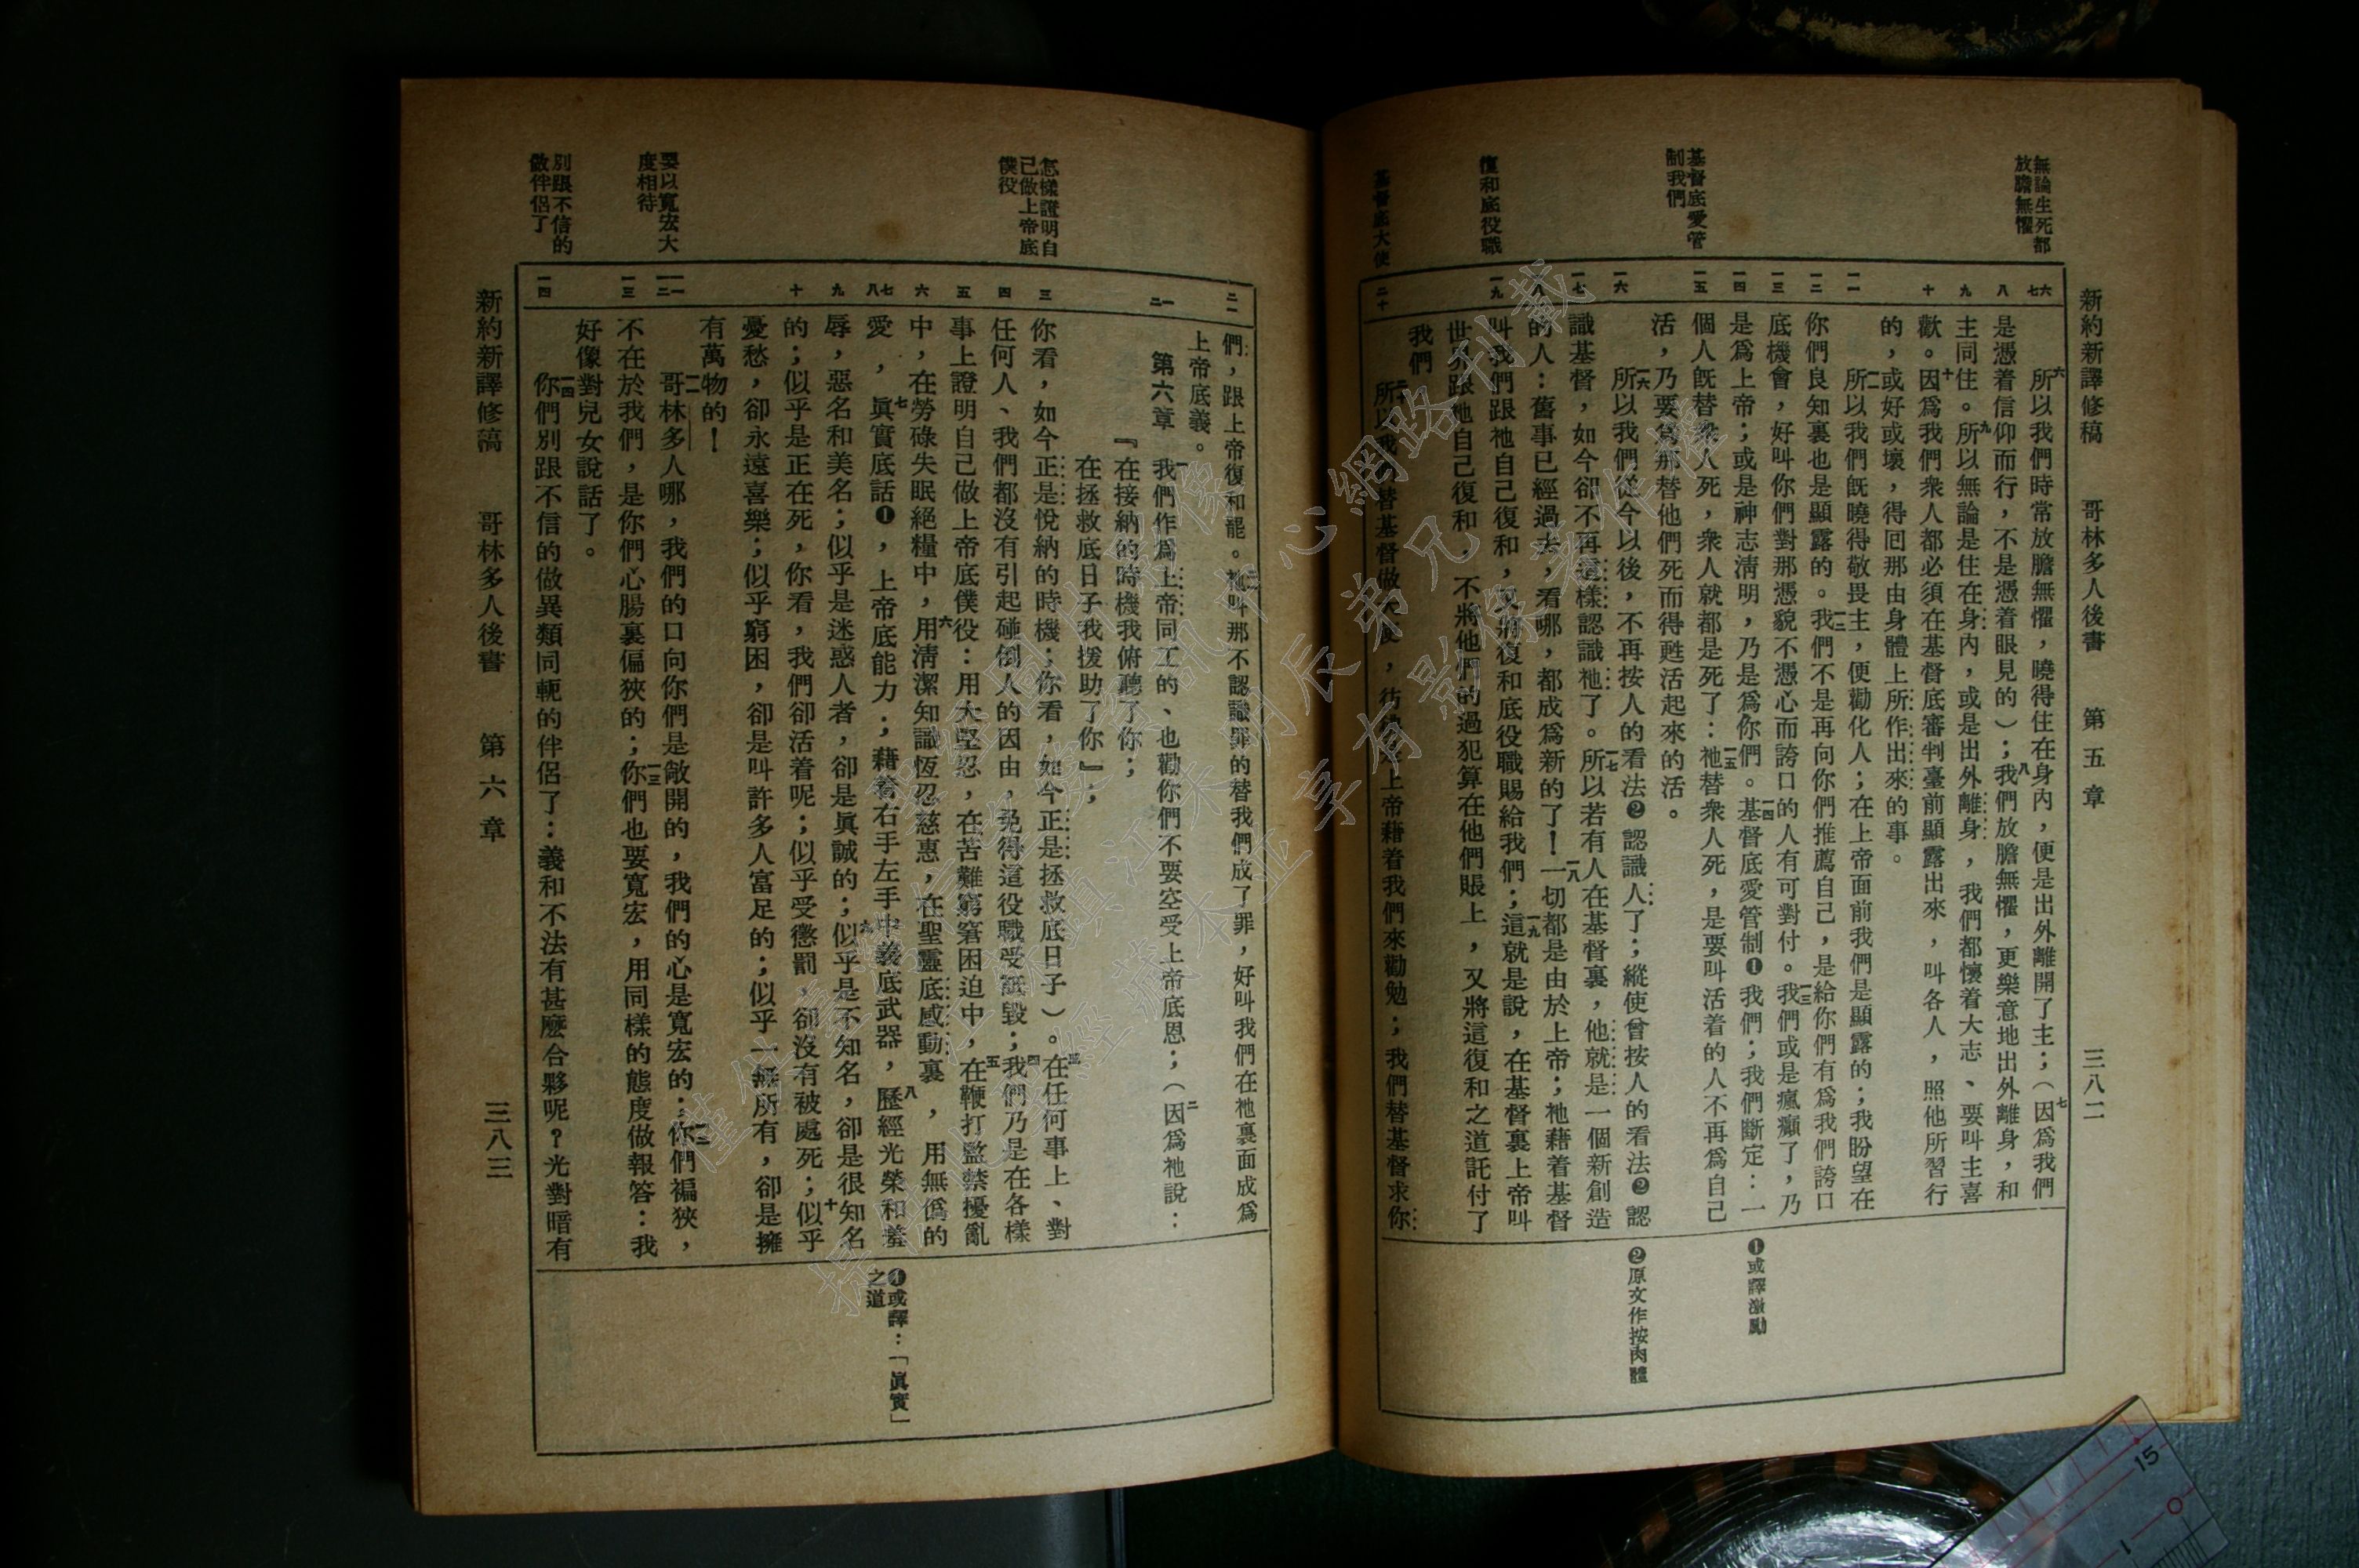 新約新譯修稿　哥林多人後書　第五章　三八二
無論生死都
放膽無懼
基督底愛管
制我們
復和底役職
基督底大使
六七
八
九
十
一一
一二
一三
一四
一五
一六
一七
一八
一九
二十
六所以我們時常放膽無懼，曉得住在身內，便是出外離開了主；（七因爲我們
是憑着信仰而行，不是憑着眼見的）；八我們放膽無懼，更樂意地出外離身，和
主同住。九所以無論是住在身內，或是出外離身，我們都懷着大志、要叫主喜
歡。十因爲我們衆人都必須在基督底審判臺前顯露出來，叫各人，照他所習行
的，或好或壞，得回那由身體上所作出來的事。
一一所以我們旣曉得敬畏主，便勸化人；在上帝面前我們是顯露的；我盼望在
你們良知裏也是顯露的。一二我們不是再向你們推薦自己，是給你們有爲我們誇口
底機會，好叫你們對那憑貌不憑心而誇口的人有可對付。一三我們或是瘋癲了，乃
是爲上帝；或是神志淸明，乃是爲你們。一四基督底愛管制❶我們；我們斷定：一
個人旣替衆人死，衆人就都是死了：一五祂替衆人死，是要叫活着的人不再爲自己
活，乃要爲那替他們死而得甦活起來的活。
一六所以我們從今以後，不再按人的看法❷認識人了；縱使曾按人的看法❷認
識基督，如今卻不再這樣認識祂了。一七所以若有人在基督裏，他就是一個新創造
的人：舊事已經過去，看哪，都成爲新的了！一八一切都是由於上帝；祂藉着基督
叫我們跟祂自己復和，又將復和底役職賜給我們；一九這就是說，在基督裏上帝叫
世界跟祂自己復和，不將他們的過犯算在他們賬上，又將這復和之道託付了
我們
所以我們替基督做大使，彷彿是上帝藉着我們來勸勉；我們替基督求你
❶或譯激勵
❷原文作按肉體
怎樣證明自
己做上帝底
僕役
要以寬宏大
度相待
別跟不信的
做伴侶了
二一
一二
三
四
五
六
七八
九
十
一一
一二
一三
一四
們，跟上帝復和罷。二一祂叫那不認識罪的替我們成了罪，好叫我們在祂裏面成爲
上帝底義。
第六章　一我們作爲上帝同工的、也勸你們不要空受上帝底恩；（二因爲祂說：
『在接納的時機我俯聽了你；
在拯救底日子我援助了你』；
你看，如今正是悅納的時機；你看，如今正是拯救底日子）。三在任何事上、對
任何人、我們都沒有引起碰倒人的因由，免得這役職受詆毀；四我們乃是在各樣
事上證明自己做上帝底僕役：用大堅忍，在苦難窮窘困迫中，五在鞭打監禁擾亂
中，在勞碌失眠絕糧中，六用淸潔知識恆忍慈惠，在聖靈底感動裏，用無僞的
愛，七眞實底話❶，上帝底能力；藉着右手左手中義底武器，八歷經光榮和羞
辱，惡名和美名；似乎是迷惑人者，卻是眞誠的；九似乎是不知名，卻是很知名
的；似乎是正在死，你看，我們卻活着呢；似乎受懲罰，卻沒有被處死；十似乎
憂愁，卻永遠喜樂；似乎窮困，卻是叫許多人富足的；似乎一無所有，卻是擁
有萬物的！
一一哥林多人哪，我們的口向你們是敞開的，我們的心是寬宏的；一二你們褊狹，
不在於我們，是你們心腸裏偏狹的；一三你們也要寬宏，用同樣的態度做報答：我
好像對兒女說話了。
一四你們別跟不信的做異類同軛的伴侶了：義和不法有甚麽合夥呢？光對暗有
❶或譯：「眞實」
之道
新約新譯修稿　哥林多人後書　第六章　三八三